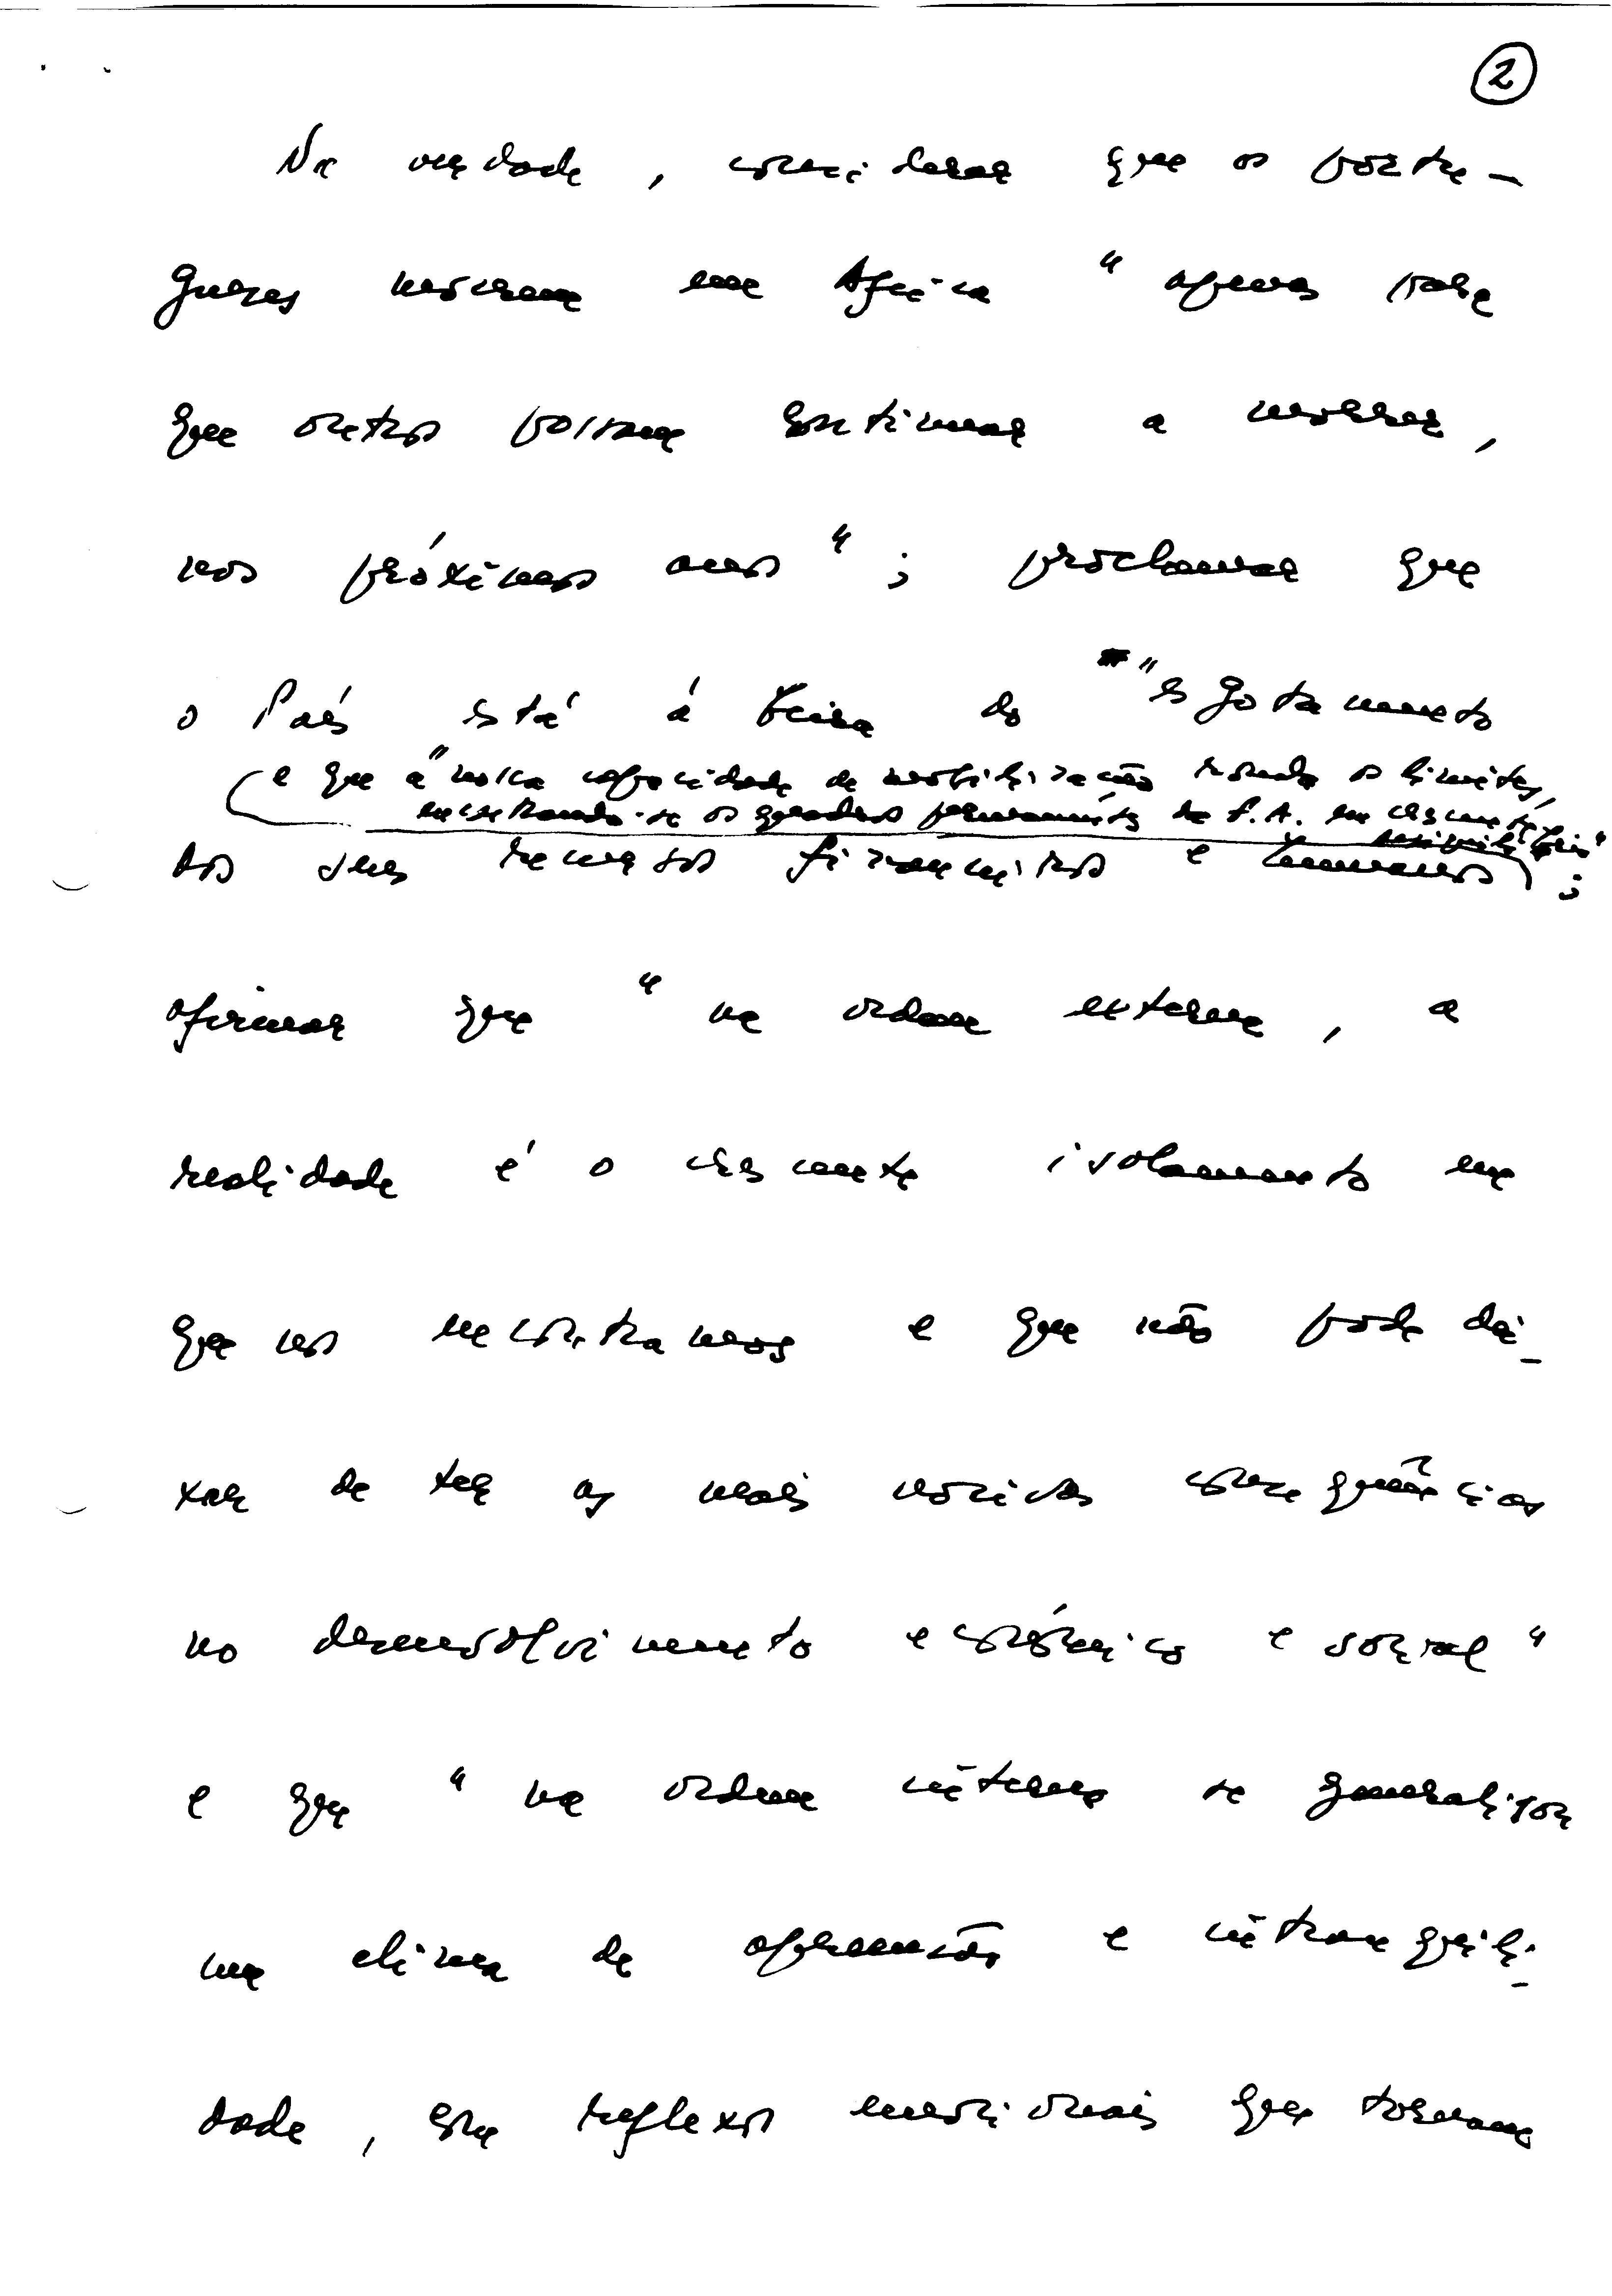 2
Na verdade, considerar que os portu-
gueses morrem em África "apenas para
que outros possam continuar a morrer,
nos próximos anos"; proclamar que
o País está à beira do "esgotamento
e que a "nossa capacidade de mobilização os limites,
encontrando-se os quadros permanentes das F.A. em crescente
dos seus recursos financeiros e humanos;
afirmar que "na ordem externa, a
realidade é o crescente isolamento em
que nos encontramos e que não pode dei-
xar de ter as mais nocivas consequências
no desenvolvimento económico e social"
e que "na ordem interna se generalizou
um clima de apreensão e intranquili-
dade, com reflexos emocionais que tornam